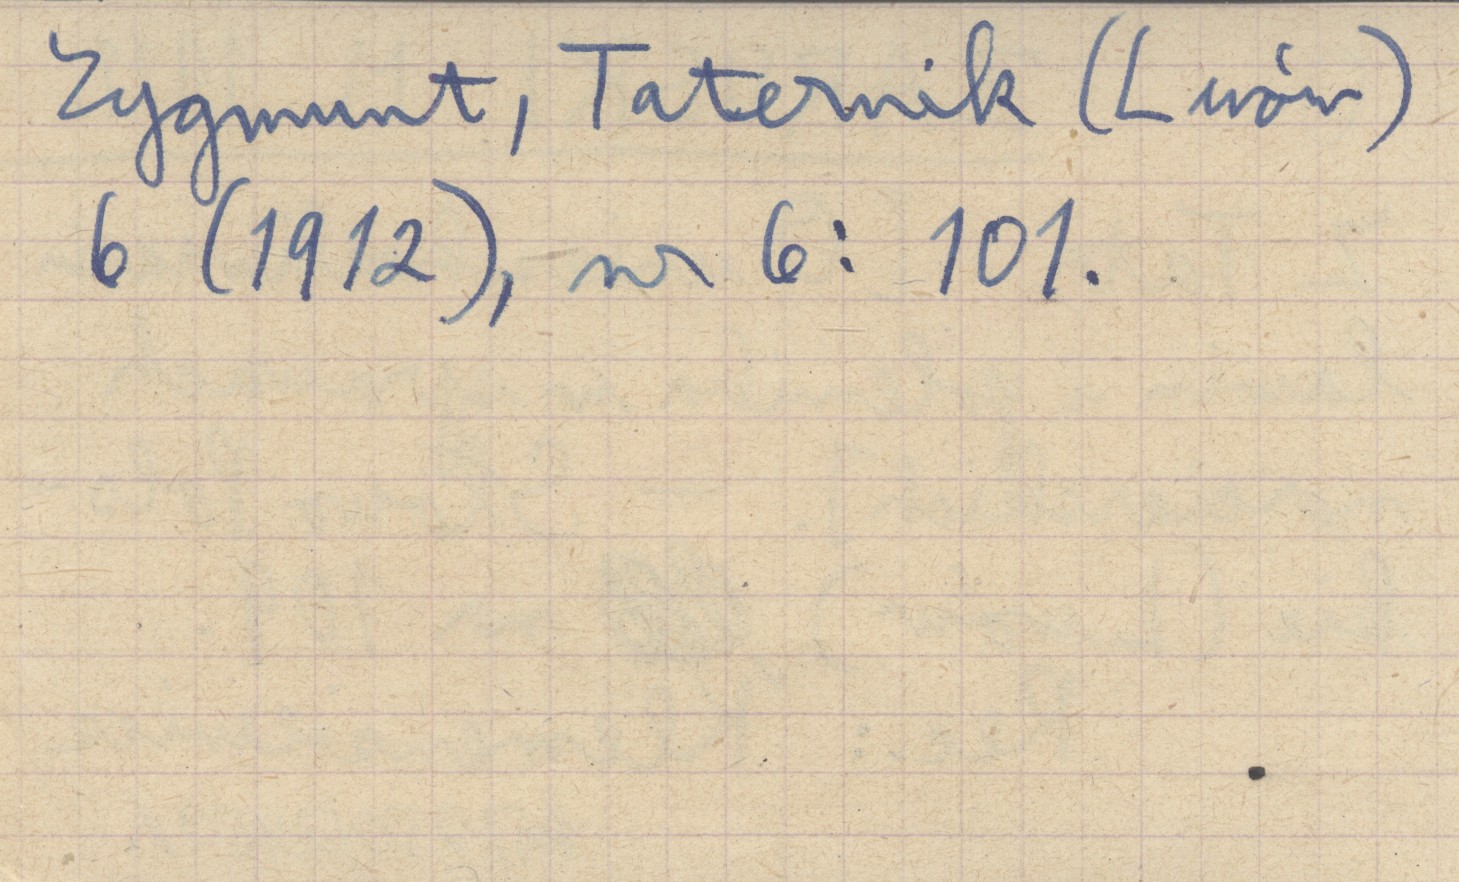 Zygmunt, Taternik (Lwów)
6 (1912), nr 6: 101.